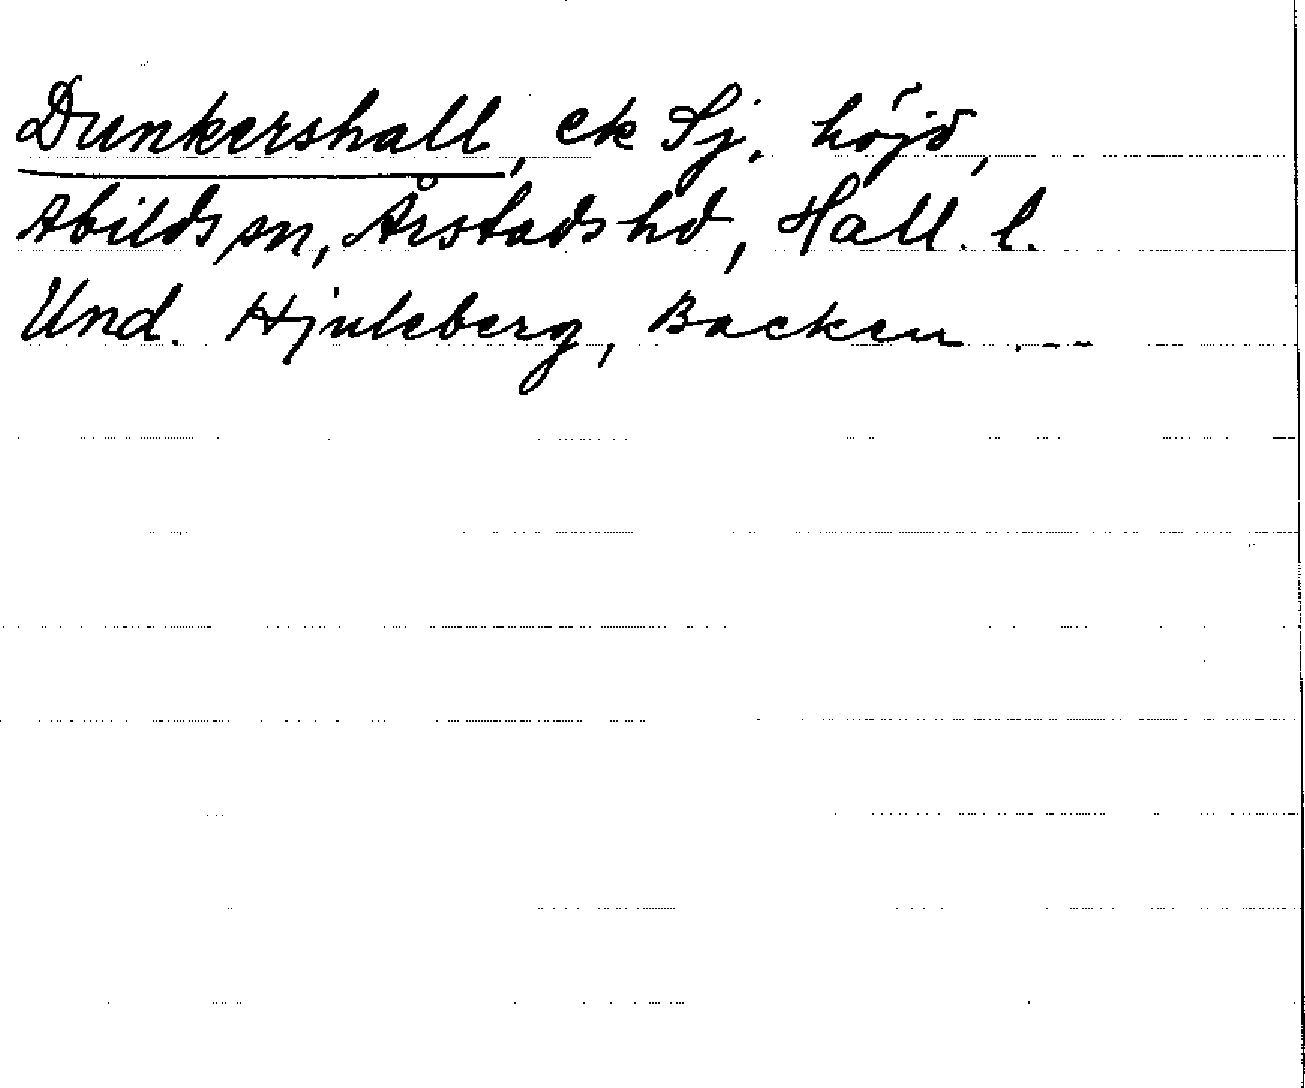 Dunkershall, ek Sj. höjd,
Abilds sn, Årstads hd, Hall. l.
Und. Hjuleberg, Backen . --